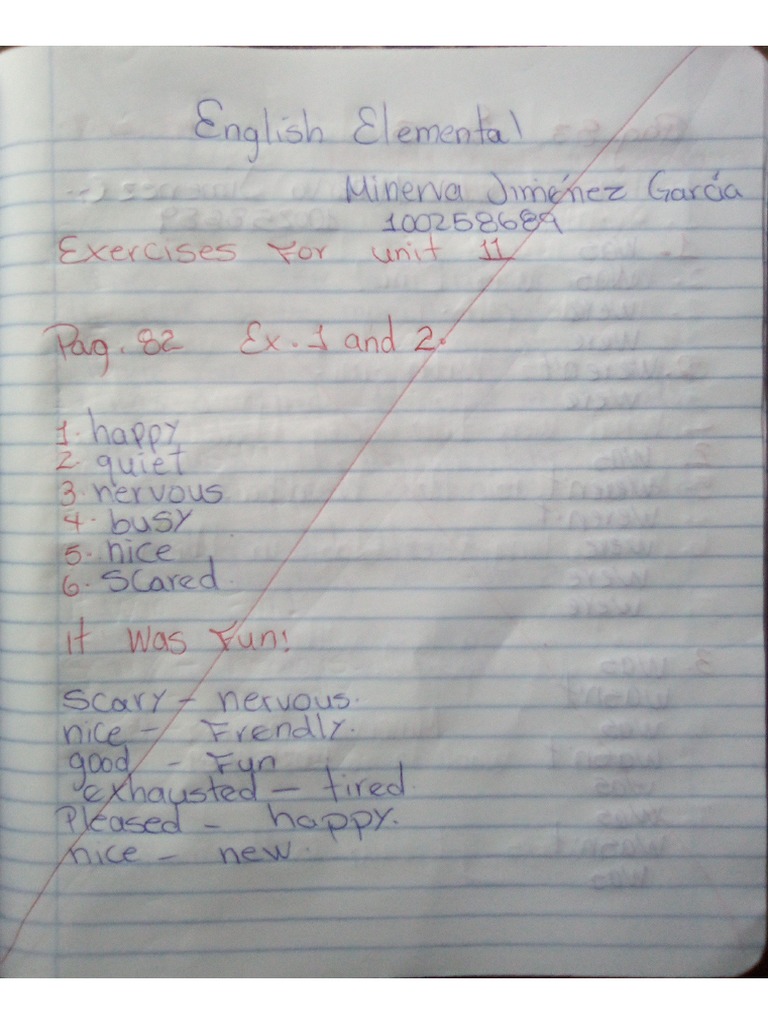 English Elemental
Minerva Jiménez García
100258689
Exercises For unit 11
Pag. 82 Ex. 1 and 2.
1. happy
2. quiet
3. nervous
4. busy
5. nice
6. Scared.
it was Fun!
Scary - nervous.
nice - Frendly.
good - Fun
exhausted - tired.
Pleased - happy.
nice - new.